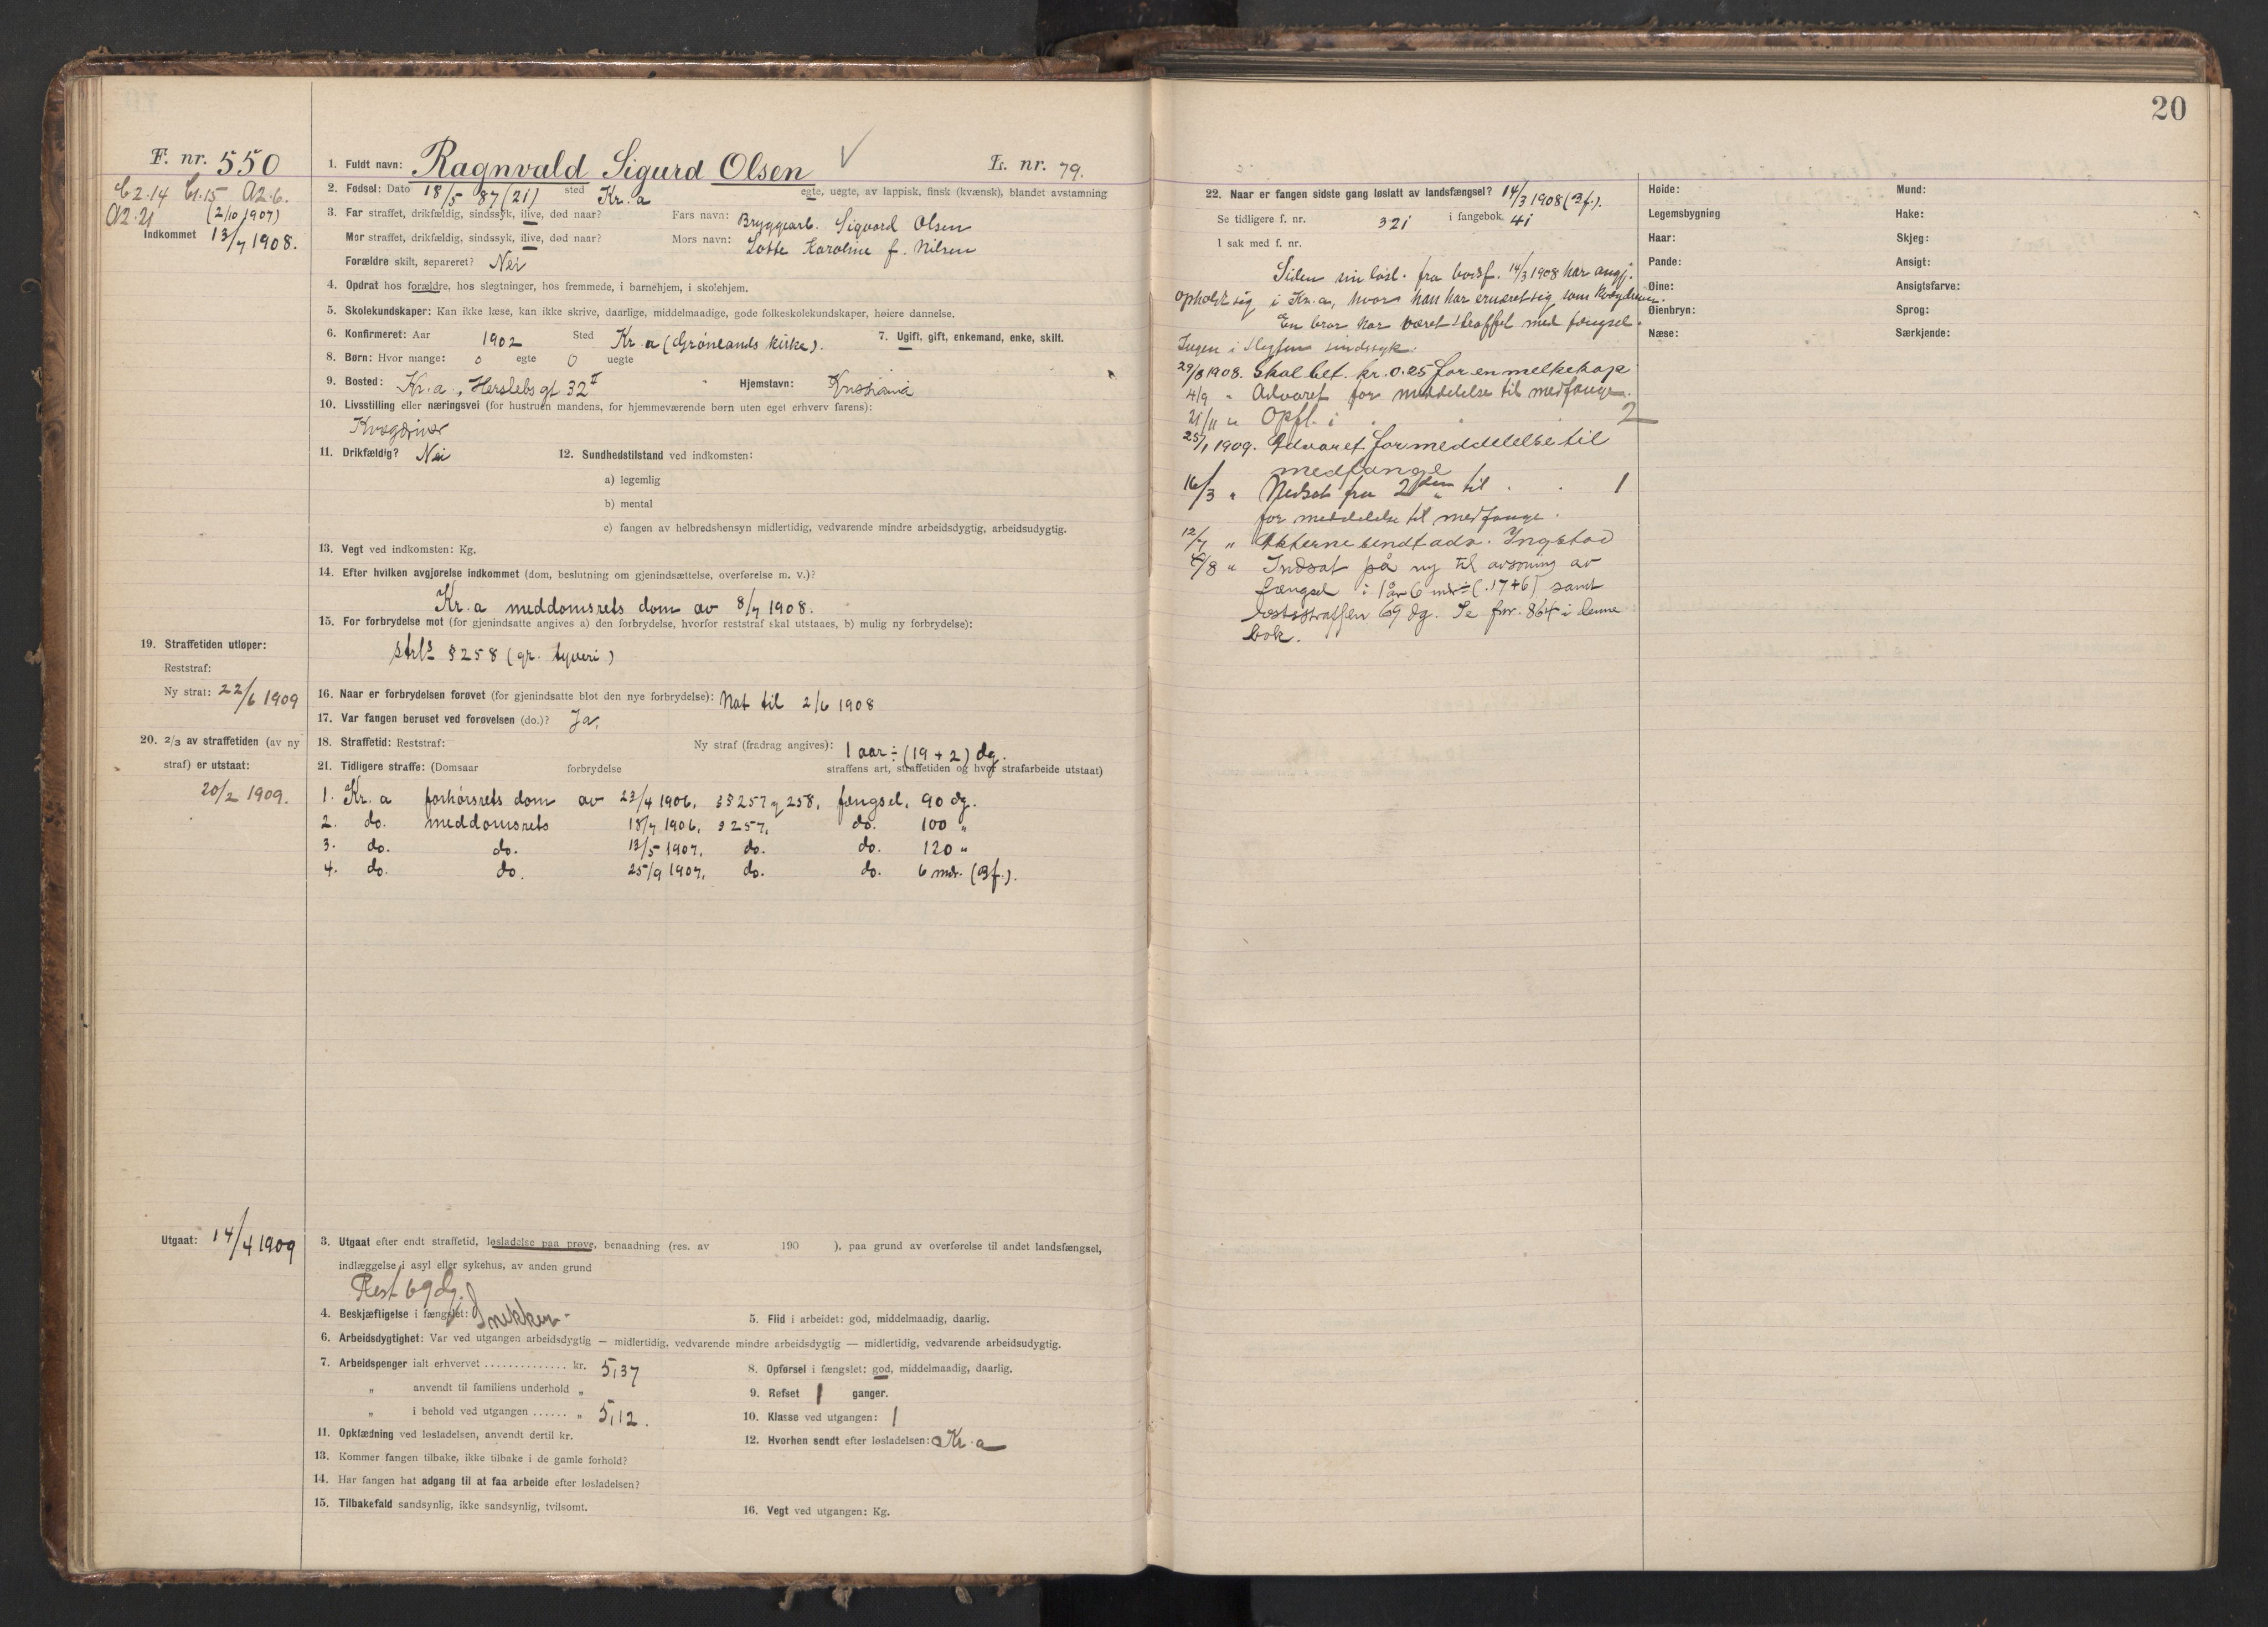 20
F. nr. 550
1. Fuldt navn: Ragnvald Sigurd Olsen
Fs. nr. 79.
C2.14 C1.15 A2.6.
A2.21 (2/10 1907)
Indkommet 13/7 1908.
2. Fødsel: Dato 18/5 87 (21) sted Kr.a egte, uegte, av lappisk, finsk (kvænsk), blandet avstamning
3. Far straffet, drikfældig, sindssyk, ilive, død naar? Fars navn: Bryggearb. Sigvard Olsen
Mor straffet, drikfældig, sindssyk, ilive, død naar? Mors navn: Lotte Karoline f. Nilsen
Forældre skilt, separeret? Nei
4. Opdrat hos forældre, hos slegtninger, hos fremmede, i barnehjem, i skolehjem.
5. Skolekundskaper: Kan ikke læse, kan ikke skrive, daarlige, middelmaadige, gode folkeskolekundskaper, høiere dannelse.
6. Konfirmeret: Aar 1902 Sted Kr.a (Grønlands kirke). 7. Ugift, gift, enkemand, enke, skilt.
8. Børn: Hvor mange: 0 egte 0 uegte
9. Bosted: Kr.a, Herslebs gt 32 II Hjemstavn: Kristiania
10. Livsstilling eller næringsvei (for hustruen mandens, for hjemmeværende børn uten eget erhverv farens):
Kvægdriver
11. Drikfældig? Nei 12. Sundhedstilstand ved indkomsten:
a) legemlig
b) mental
c) fangen av helbredshensyn midlertidig, vedvarende mindre arbeidsdygtig, arbeidsudygtig.
13. Vegt ved indkomsten: Kg.
14. Efter hvilken avgjørelse indkommet (dom, beslutning om gjenindsættelse, overførelse m. v.)?
Kr.a meddomsrets dom av 8/7 1908.
15. For forbrydelse mot (for gjenindsatte angives a) den forbrydelse, hvorfor reststraf skal utstaaes, b) mulig ny forbrydelse):
strls § 258 (gr. tyveri)
19. Straffetiden utløper:
Reststraf:
Ny straf: 22/6 1909
16. Naar er forbrydelsen forøvet (for gjenindsatte blot den nye forbrydelse): Nat til 2/6 1908
17. Var fangen beruset ved forøvelsen (do.)? Ja.
20. 2/3 av straffetiden (av ny
straf) er utstaat:
20/2 1909.
18. Straffetid: Reststraf: Ny straf (fradrag angives): 1 aar ÷ (19 + 2) dg.
21. Tidligere straffe: (Domsaar forbrydelse straffens art, straffetiden og hvor strafarbeide utstaat)
1. Kr.a forhørsrets dom av 23/4 1906, §§ 257 og 258, fængsel, 90 dg.
2. do. meddomsrets 18/7 1906, § 257, do. 100 "
3. do. do. 13/5 1907, do. do. 120 "
4. do. do. 25/9 1907, do. do. 6 mdr. (Bf.).
Utgaat: 14/4 1909
3. Utgaat efter endt straffetid, løsladelse paa prøve, benaadning (res. av 190 ), paa grund av overførelse til andet landsfængsel,
indlæggelse i asyl eller sykehus, av anden grund
Rest 69 dg.
4. Beskjæftigelse i fængslet: Snekker
5. Flid i arbeidet: god, middelmaadig, daarlig.
6. Arbeidsdygtighet: Var ved utgangen arbeidsdygtig — midlertidig, vedvarende mindre arbeidsdygtig — midlertidig, vedvarende arbeidsudygtig.
7. Arbeidspenger ialt erhvervet .............. kr. 5,37
8. Opførsel i fængslet: god, middelmaadig, daarlig.
" anvendt til familiens underhold "
9. Refset 1 ganger.
" i behold ved utgangen ...... " 5,12.
10. Klasse ved utgangen: 1
11. Opklædning ved løsladelsen, anvendt dertil kr.
12. Hvorhen sendt efter løsladelsen: Kr.a
13. Kommer fangen tilbake, ikke tilbake i de gamle forhold?
14. Har fangen hat adgang til at faa arbeide efter løsladelsen?
15. Tilbakefald sandsynlig, ikke sandsynlig, tvilsomt.
16. Vegt ved utgangen: Kg.
22. Naar er fangen sidste gang løslatt av landsfængsel? 14/3 1908 (Bf.).
Se tidligere f. nr. 321 i fangebok 41
I sak med f. nr.
Siden sin løsl. fra bodsf. 14/3 1908 har angj.
opholdt sig i Kr.a, hvor han har ernæret sig som kvægdriver.
En bror har været straffet med fængsel.
Ingen i slegten sindssyk.
29/8 1908. Skal bet. kr. 0.25 for en melkekop
4/9 " Advaret for meddelelse til medfange.
21/11 " Opfl. i 2
25/1 1909. Advaret for meddelelse til
medfange
16/3 " Nedsat fra 2den til 1
for meddelelse til medfange.
12/7 " Akterne sendt adv. Ingstad
6/8 " Indsat på ny til avsoning av
fængsel i 1 år 6 mdr ÷ (17+6) samt
reststraffen 69 dg. Se fnr. 864 i denne
bok.
Høide: Mund:
Legemsbygning Hake:
Haar: Skjeg:
Pande: Ansigt:
Øine: Ansigtsfarve:
Øienbryn: Sprog:
Næse: Særkjende: